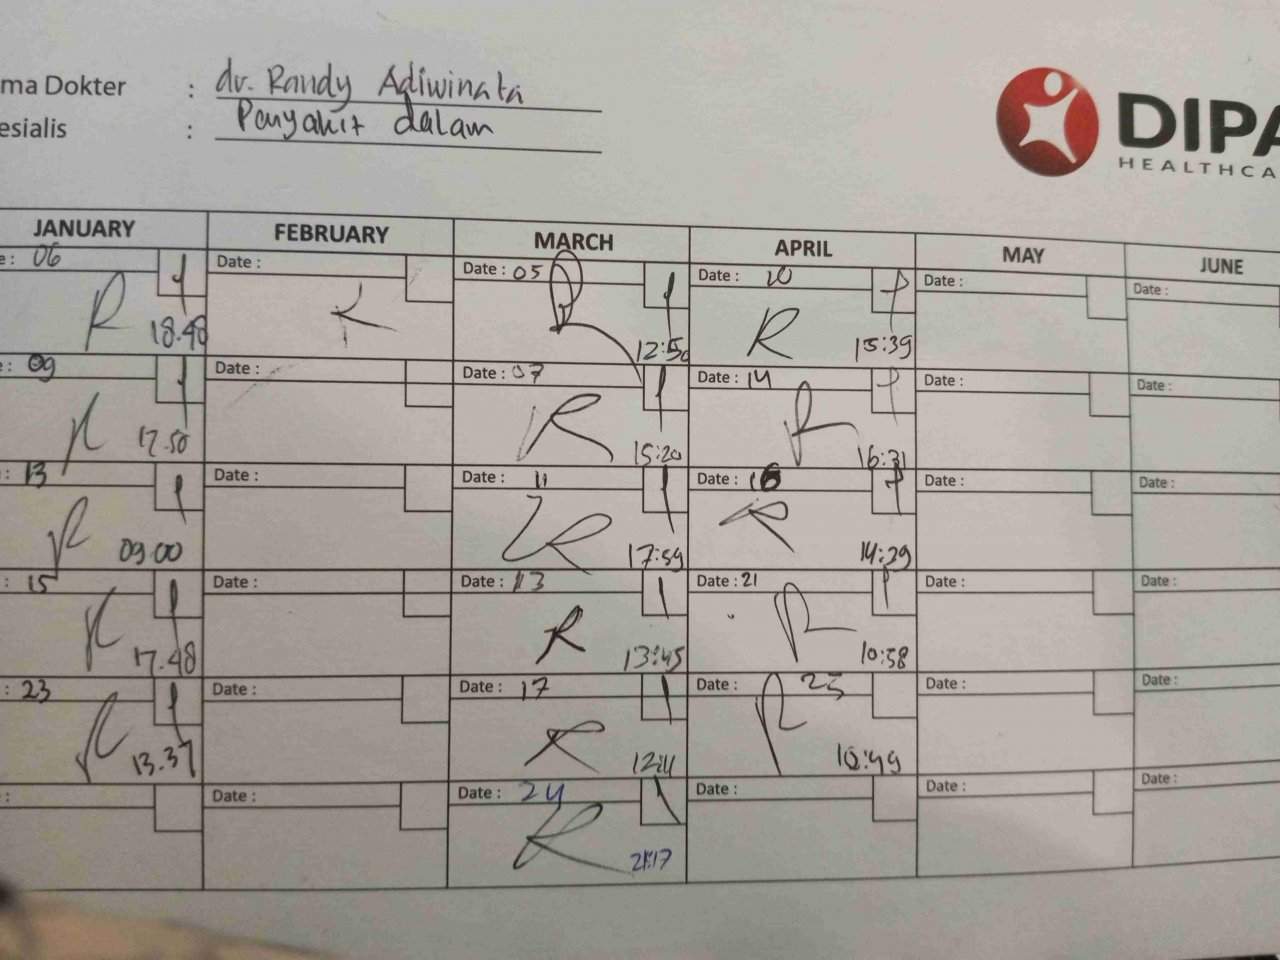 ma Dokter : dr. Randy Adiwinata
esialis : Penyakit dalam
DIPA
HEALTHCA
JANUARY FEBRUARY MARCH APRIL MAY JUNE
e : 06 Date : Date : 05 Date : 10 Date : Date :
R 18.48 R 12:50 R 15:39
e : 09 Date : Date : 07 Date : 14 Date : Date :
17.50 R 15:20 R 16:31
: 13 Date : Date : 11 Date : 16 Date : Date :
R 09.00 R 17:59 R 14:29
: 15 Date : Date : 13 Date : 21 Date : Date :
17.48 R 13:45 R 10:58
: 23 Date : Date : 17 Date : 25 Date : Date :
R 13.37 R 12:11 R 10:49
: Date : Date : 24 Date : Date : Date :
R 21:17